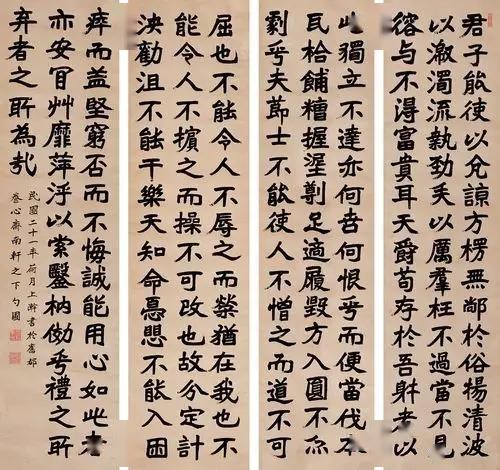 君子能使以兌諒方楞無鄙於俗揚清波
以激濁流執勁矢以厲羣枉不過當不見
容與不得富貴耳天爵苟存於吾躰者以
此獨立不達亦何咎何恨乎而便當伐本
瓦枱餔糟握埿剸足適履毀方入圓不亦
劇乎夫節士不能使人不憎之而道不可
屈也不能令人不辱之而榮猶在我也不
能令人不擯之而操不可改也故分定計
決勸沮不能干樂天知命憂懼不能入困
瘁而益堅窮否而不悔誠能用心如此者
亦安肎艸靡萍浮以索鑿枘傚乎禮之所
弃者之所為哉
民國二十一年荷月上澣書於舊都
養心齋南軒之下勺園